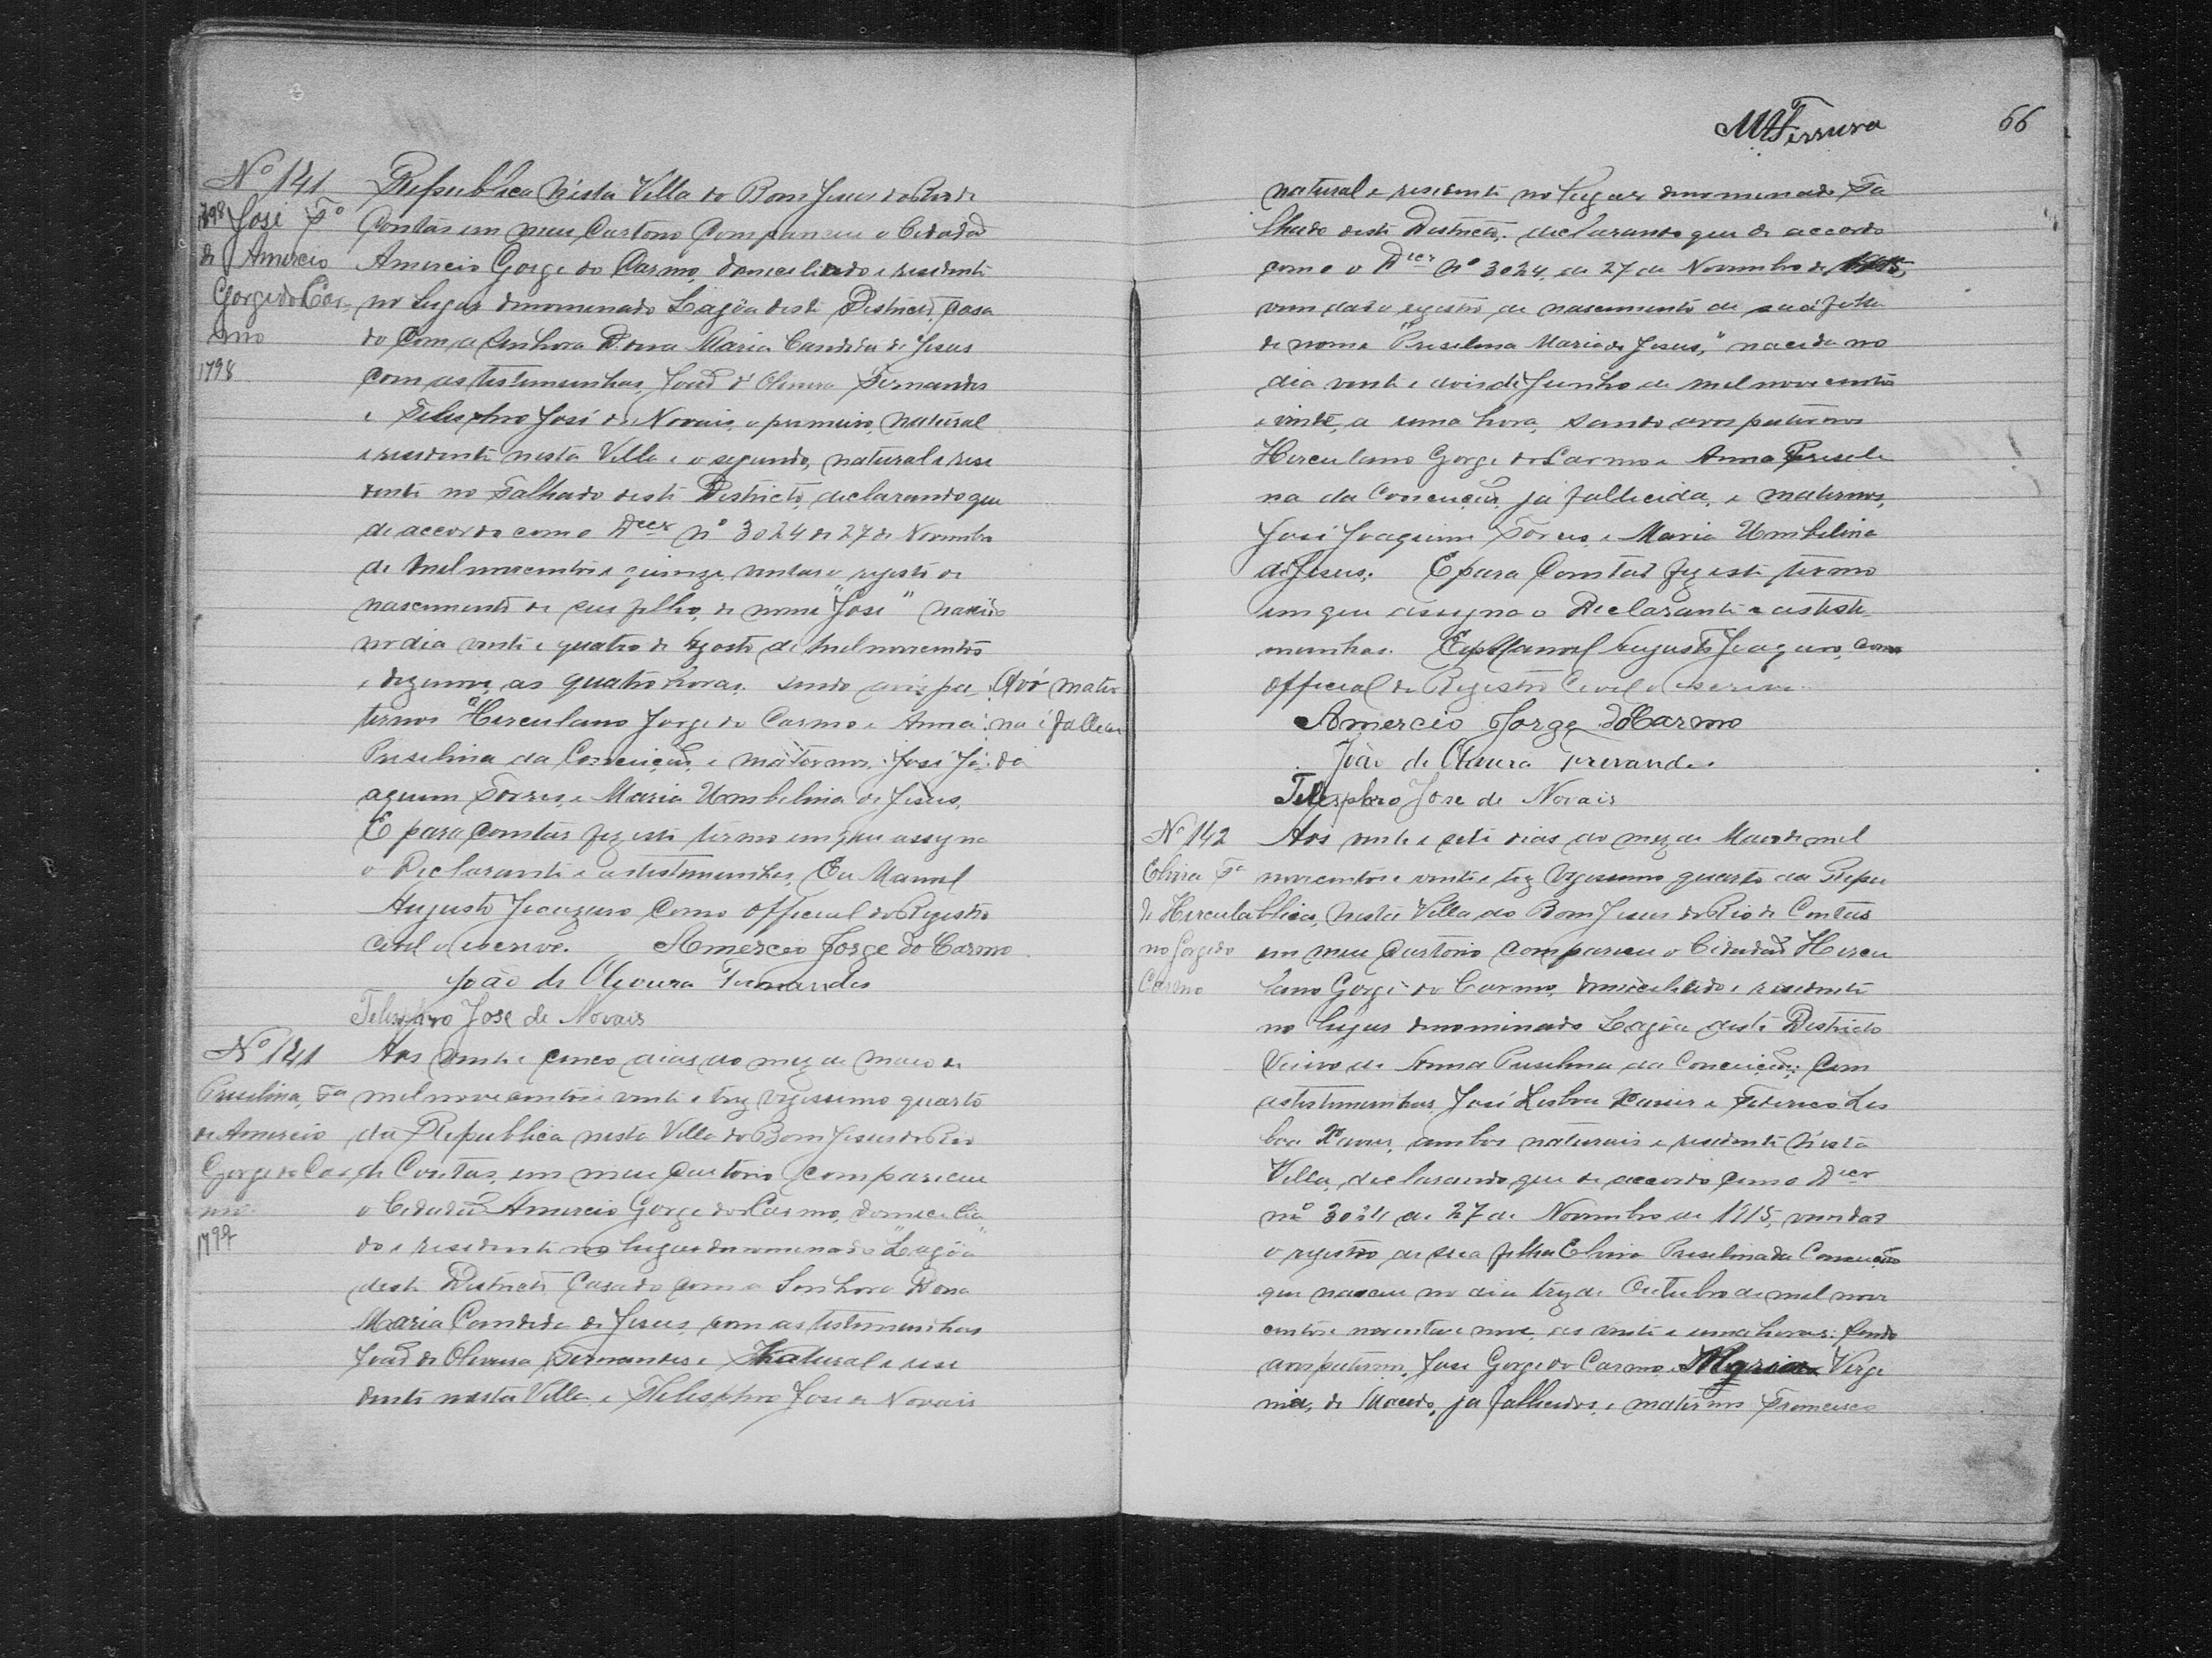 Nº 141
1798 José Fº
de Amercio
Gorge do Car
mo
1798
Republica n'esta Villa do Bom Jesus do Rio de
Contas em meu Cartorio Compareceu o Cidadão
Amercio Gorge do Carmo, domeciliado e residente
no lugar denomenado Lagôa deste Districto, casa
do com a Senhora Dona Maria Candida de Jesus
com as testemunhas, João d'Oliveira Fernandes
e Telesphro José de Novais, o primeiro, natural
e residente nesta Villa e o segundo, natural e resi
dente no Talhado deste Districto, declarando que
de accordo com o Decr nº 3024 de 27 de Novembro
de mil novecentos e quinze, vem dar o registo de
nascemento de seu filho, de nome "José" nacido
no dia vinte e quatro de Agosto de mil novecentos
e dezenove, as quatro horas. sendo avós pa
ternos Herculano Jorge do Carmo e Anna
Priselina da Conceição, e maternos, José Jo
aquim Torres, e Maria Umbelina de Jesus.
Avó mater
na é fallici
da
E para constar fez este termo em que assigna
o Declarante e as testemunhas, Eu Manoel
Augusto Joazeiro Como official do Registro
Civil o escrevi. Amercio Jorge do Carmo
João de Oliveira Fernandes
Telesphro José de Novais
Nº 141
Priselina, Fa
de Amercio
Gorge do Car
mo
Aos vinte e cinco dias do mez de maio de
mil nove centos e vinte e trez vigessimo quarto
da Republica nesta Villa do Bom Jesus do Rio
de Contas, em meu Cartorio compareceu
o Cidadão Amercio Gorge do Carmo, domecilia
do e residente no lugar denomenado "Lagôa"
deste Districto Casado com a Senhora Dona
Maria Candida de Jesus, com as testemunhas
João de Oliveira Fernandes e natural e resi
dente nesta Villa, e Telesphro José de Novais
66
natural e residente no lugar denomenado Ta
lhado deste Districto. declarando que de accordo
com o o Decr nº 3024, de 27 de Novembro de 1915,
vem dar o registro de nascemento de sua filha
de nome "Priselina Maria de Jesus," nacida no
dia vinte e dois de Junho de mil nove centos
e vinte, a uma hora, sendo avos paternos
Herculano Gorge do Carmo e Anna Prisele
na da Conceição, ja fallicida, e maternos,
José Joaquim Torres, e Maria Umbelina
de Jesus. E para Constar fez este termo
em que assigna o Declarante e as teste
munhas. Eu Manoel Augusto Joazeiro, como
official do Registro Civil o escrevi.
Amercio Jorge do Carmo
João de Oliveira Fernandes
Telesphro Jose de Novais
Nº 142
Elvira Fa
de Hercula
no Gorge do
Carmo
Aos vinte e sete dias do mez de Maio de mil
novecentos e vinte e trez vigessimo quarto da Repu
blica, nesta Villa do Bom Jesus do Rio de Contas
em meu Cartorio compareceu o Cidadão Hercu
lano Gorge do Carmo, domeciliado e residente
no lugar denominado Lagôa deste Districto
Viuvo de Anna Priselina da Conceição; Com
as testemunhas José Lisboa Xavier e Federico Lis
boa Xavier, ambos naturais e residente n'esta
Villa, declarando que de accordo com o Decr
nº 3024 de 27 de Novembro de 1915, vem dar
o registro de sua filha Elvira Priselina da Conceição
que nasceu no dia trez de Outubro de mil nove
centos e noventa e nove, as vinte e uma horas: sendo
avos paternos, Jose Gorge do Carmo e Maria Verge
nia, de Macedo, ja fallicidos, e maternos Francisco